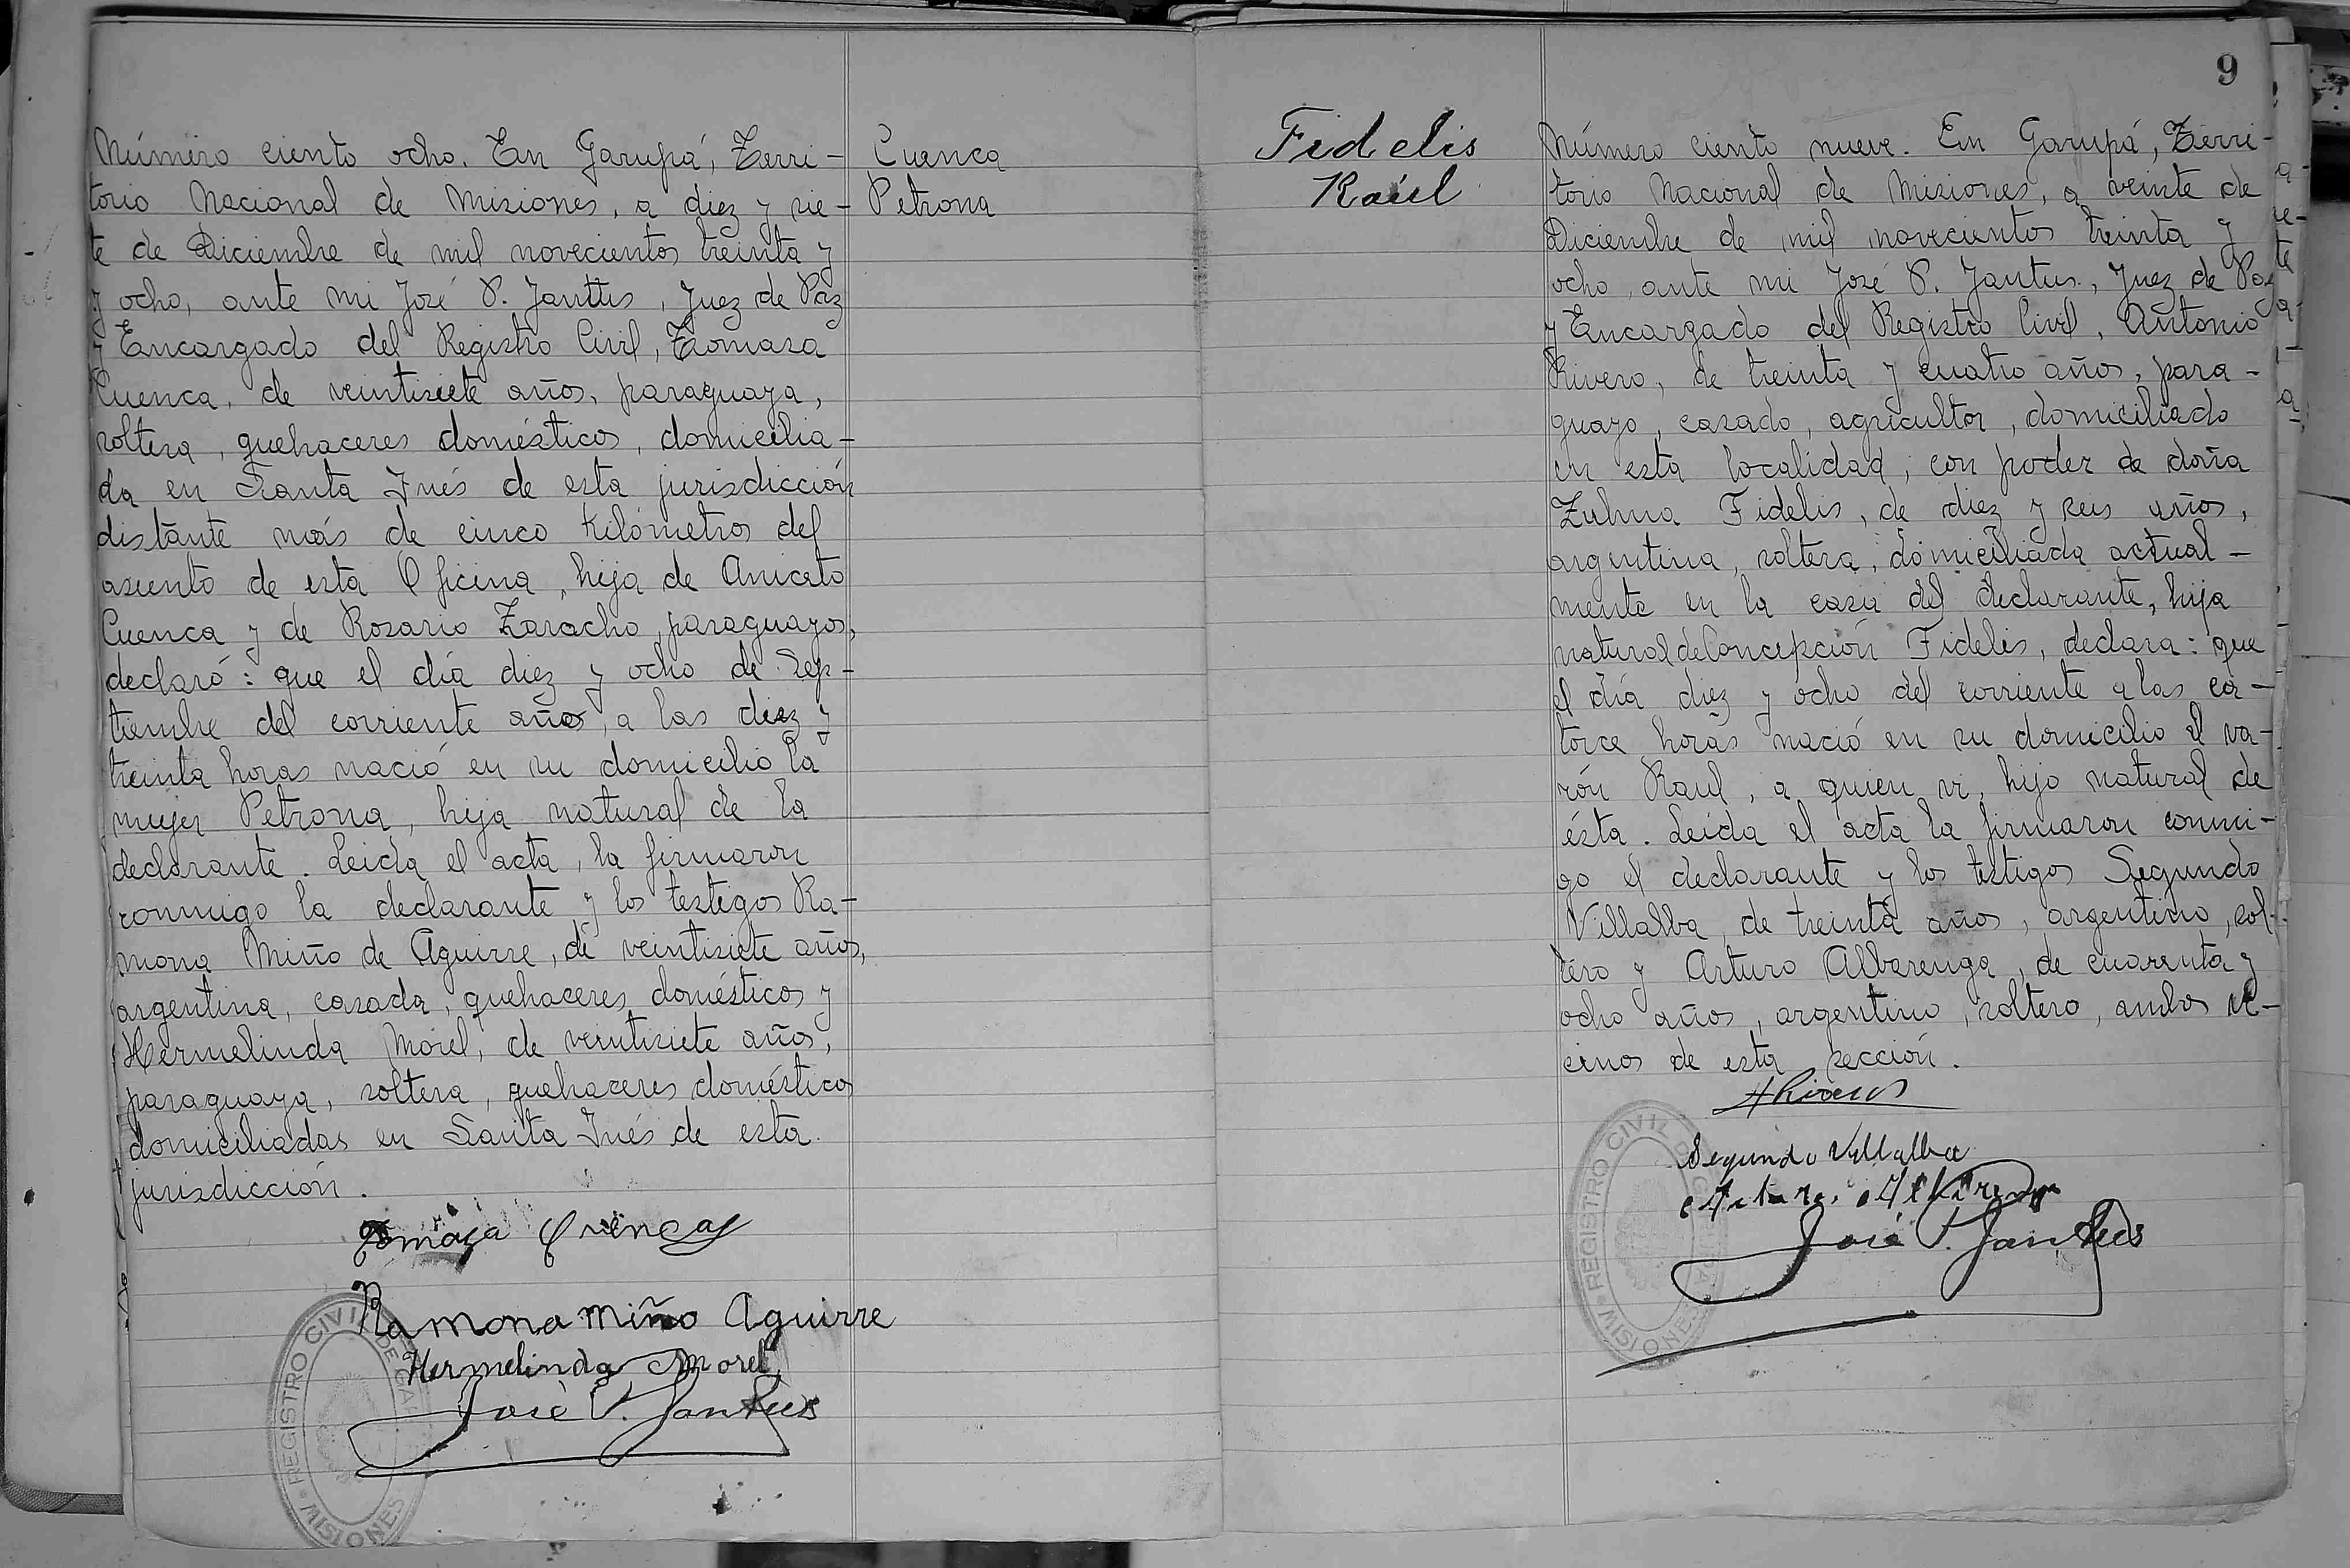 Número ciento ocho. En Garupá, Terri-
torio Nacional de Misiones, a diez y sie-
te de Diciembre de mil novecientos treinta y
y ocho, ante mi José P. Janttus, Juez de Paz
y Encargado del Registro Civil, Tomasa
Cuenca, de veintisiete años, paraguaya,
soltera, quehaceres domésticos, domicilia-
da en Santa Inés de esta jurisdicción
distante más de cinco kilómetros del
asiento de esta Oficina, hija de Aniceto
Cuenca y de Rosario Zaracho, paraguayos,
declaró: que el día diez y ocho de Sep-
tiembre del corriente año, a las diez y
treinta horas nació en su domicilio la
mujer Petrona, hija natural de la
declarante. Leida el acta, la firmaron
conmigo la declarante y los testigos Ra-
mona Miño de Aguirre, de veintisiete años,
argentina, casada, quehaceres domésticos y
Hermelinda Morel, de veintisiete años,
paraguaya, soltera, quehaceres domésticos
domiciliadas en Santa Inés de esta
jurisdicción.
Tomaza Cuenca
Ramona Miño Aguirre
Hermelinda Morel
José P. Janttus
REGISTRO CIVIL DE GA
MISIONES
Cuenca
Petrona
9
Fidelis
Raúl
Número ciento nueve. En Garupá, Terri-
torio Nacional de Misiones, a veinte de
Diciembre de mil novecientos treinta y
ocho, ante mi José P. Jantus, Juez de Paz
y Encargado del Registro Civil, Antonio
Rivero, de treinta y cuatro años, para-
guayo, casado, agricultor, domiciliado
en esta localidad, con poder de doña
Zulma Fidelis, de diez y seis años,
argentina, soltera, domiciliada actual-
mente en la casa del declarante, hija
natural de Concepción Fidelis, declara: que
el día diez y ocho del corriente a las ca-
torce horas nació en su domicilio el va-
rón Raul, a quien vi, hijo natural de
ésta. Leida el acta la firmaron conmi-
go el declarante y los testigos Segundo
Villalba, de treinta años, argentino, sol-
tero y Arturo Albarenga, de cuarenta y
ocho años, argentino, soltero, ambos ve-
cinos de esta sección.
Segundo Villalba
Arturo Albarenga
José P. Janttus
REGISTRO CIVIL
MISIONES